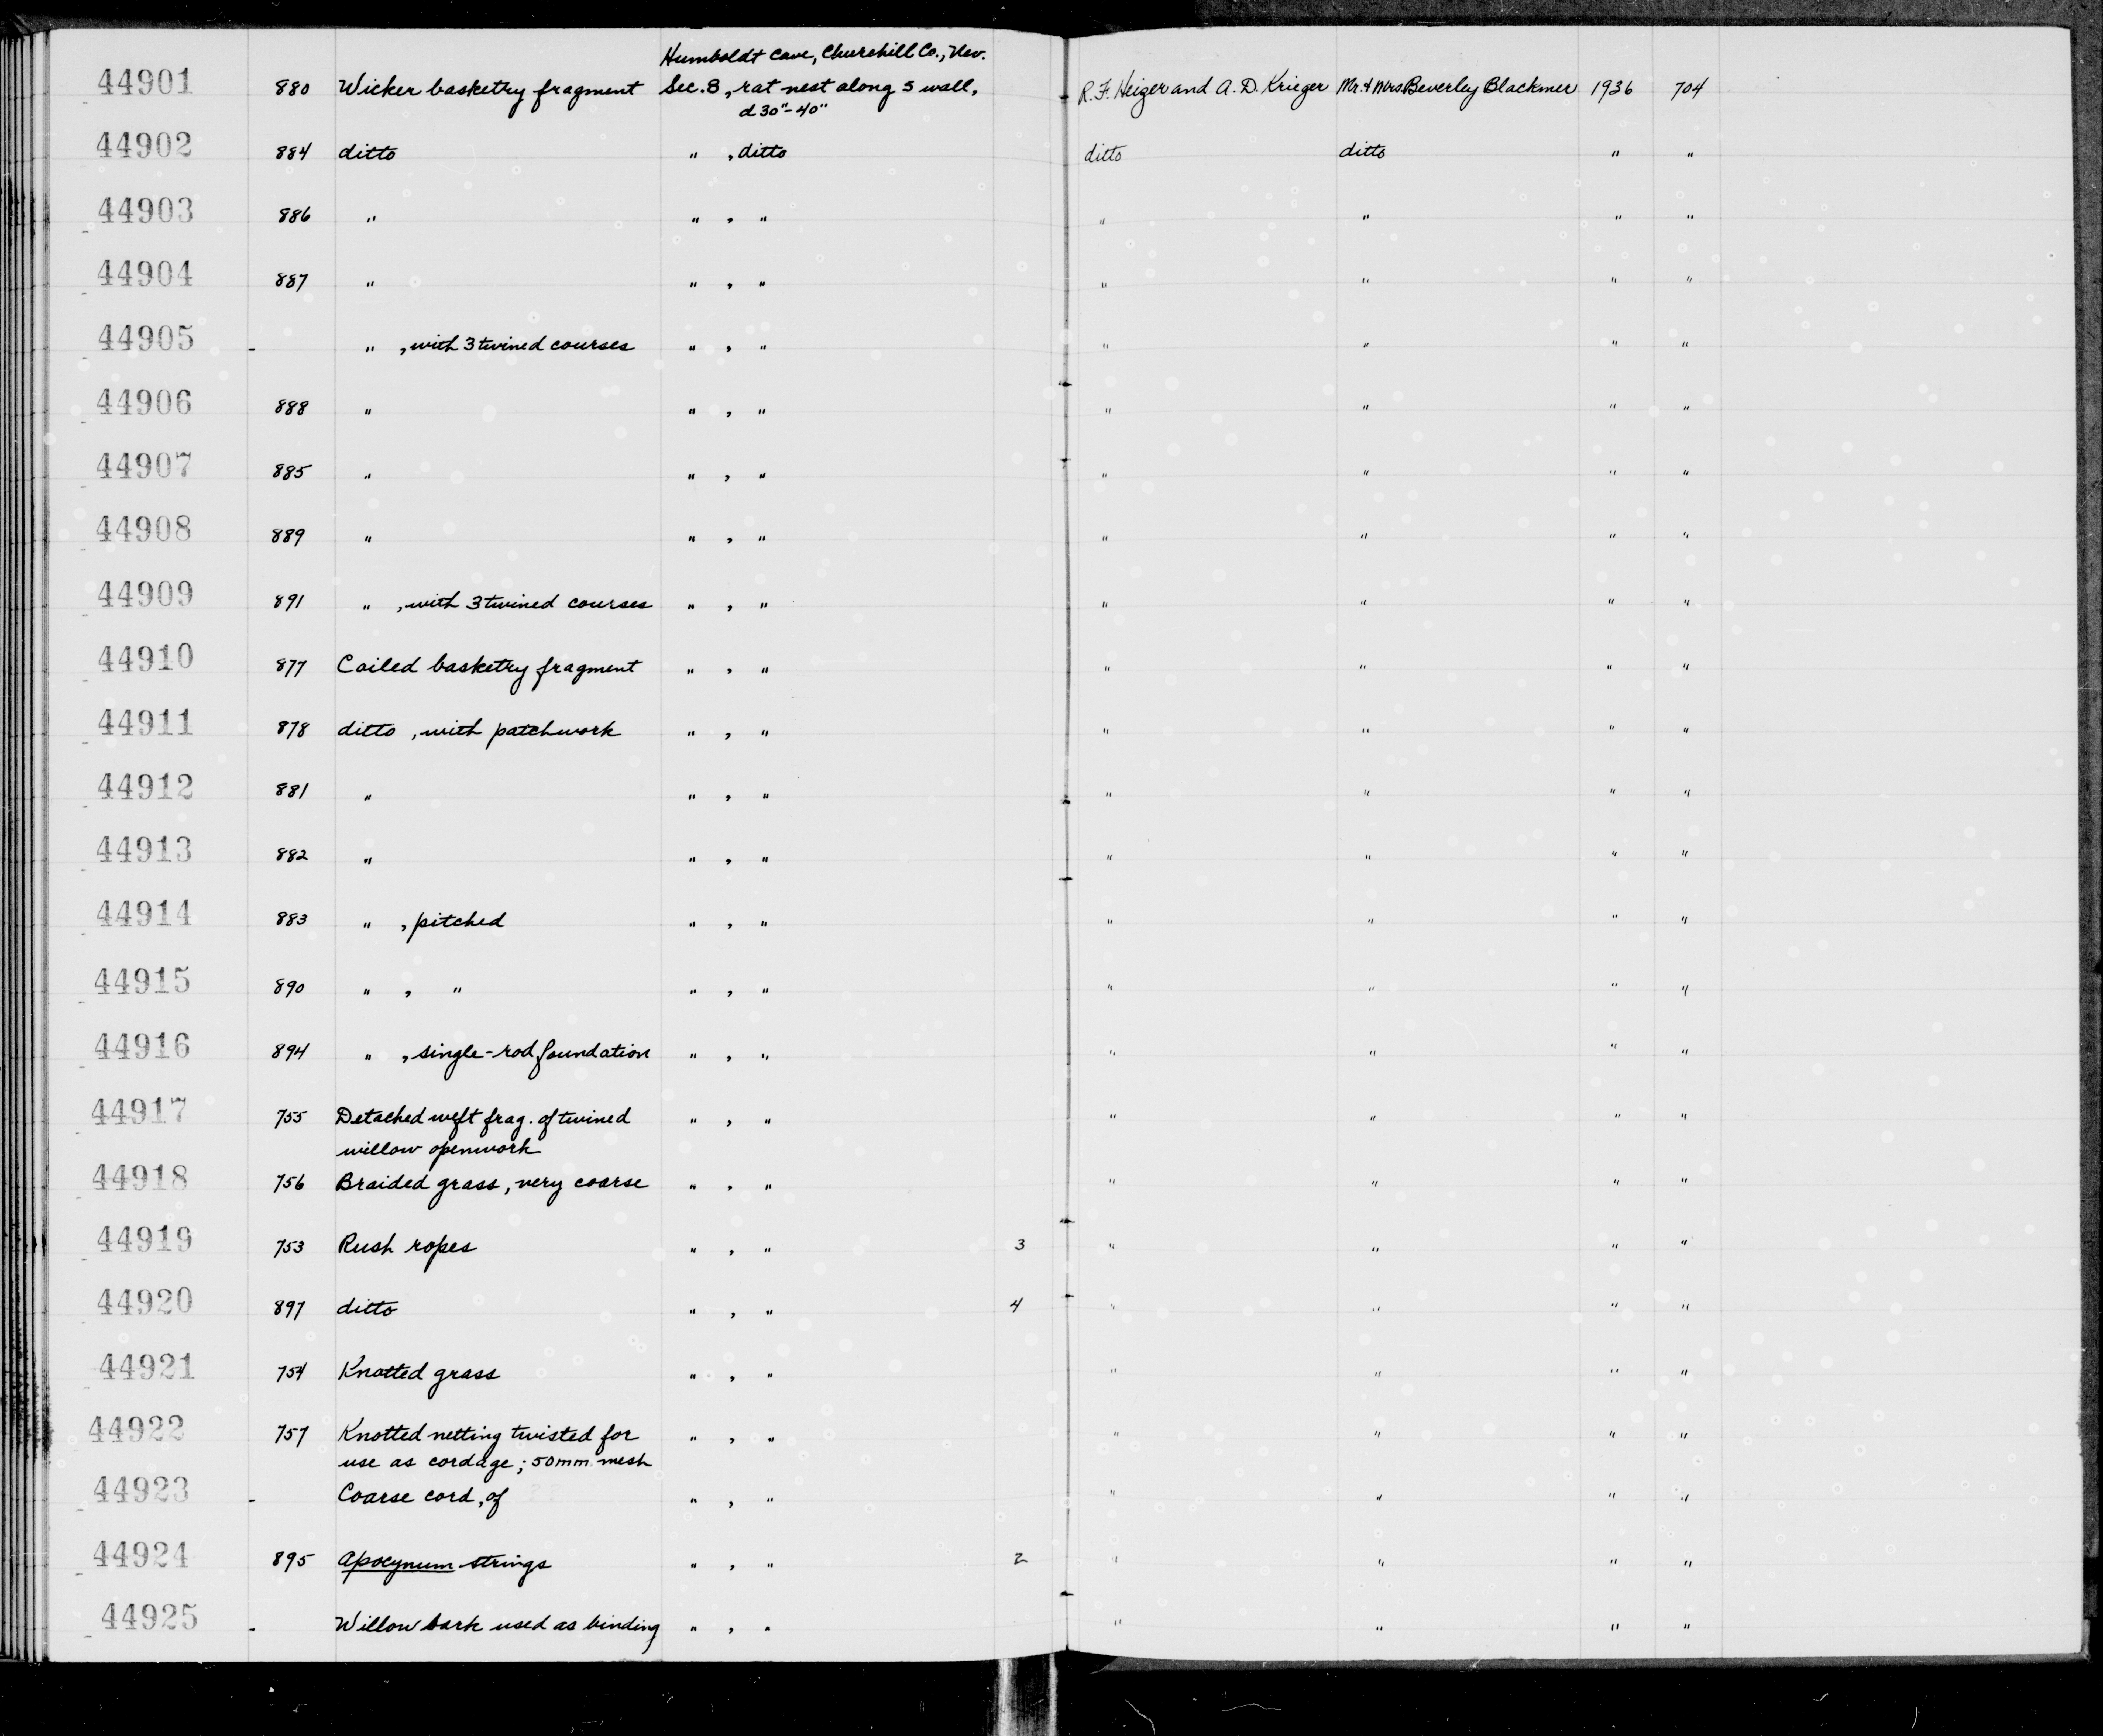 Humboldt Cave, Churchill Co., Nev.
44901 880 Wicker basketry fragment Sec. 8, rat nest along S wall, R.F. Heizer and A.D. Krieger Mr. & Mrs Beverley Blackmer 1936 704
d 30"-40"
44902 884 ditto " , ditto ditto ditto " "
44903 886 " " , " " " " "
44904 887 " " , " " " " "
44905 - " , with 3 twined courses " , " " " " "
44906 888 " " , " " " " "
44907 885 " " , " " " " "
44908 889 " " , " " " " "
44909 891 " , with 3 twined courses " , " " " " "
44910 877 Coiled basketry fragment " , " " " " "
44911 878 ditto , with patchwork " , " " " " "
44912 881 " " , " " " " "
44913 882 " " , " " " " "
44914 883 " , pitched " , " " " " "
44915 890 " , " " , " " " " "
44916 894 " , single-rod foundation " , " " " " "
44917 755 Detached weft frag. of twined " , " " " " "
willow openwork
44918 756 Braided grass, very coarse " , " " " " "
44919 753 Rush ropes " , " 3 " " " "
44920 897 ditto " , " 4 " " " "
44921 754 Knotted grass " , " " " " "
44922 757 Knotted netting twisted for " , " " " " "
use as cordage; 50mm. mesh
44923 - Coarse cord, of " , " " " " "
44924 895 Apocynum strings " , " 2 " " " "
44925 - Willow bark used as binding " , " " " " "